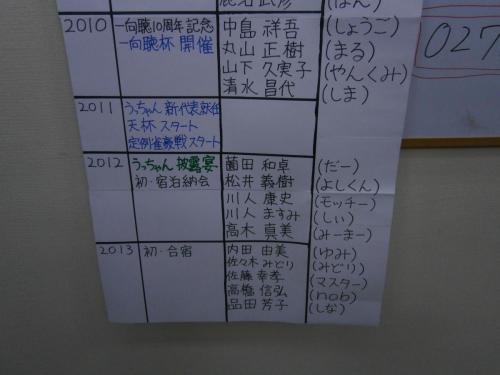 鹿石武彦 (ぱん)
2010 一向聴10周年記念 中島 祥吾 (しょうご)
一向聴杯 開催 丸山 正樹 (まる)
山下 久実子 (やんくみ)
清水 昌代 (しま)
2011 うっちゃん 新代表就任
天杯 スタート
定例雀豪戦スタート
2012 うっちゃん 披露宴 薗田 和卓 (だー)
初・宿泊納会 松井 義樹 (よしくん)
川人 康史 (モッチー)
川人 ますみ (しぃ)
高木 真美 (みーまー)
2013 初・合宿 内田 由美 (ゆみ)
佐々木 みどり (みどり)
佐藤 幸孝 (マスター)
高橋 信弘 (nob)
品田 芳子 (しな)
027